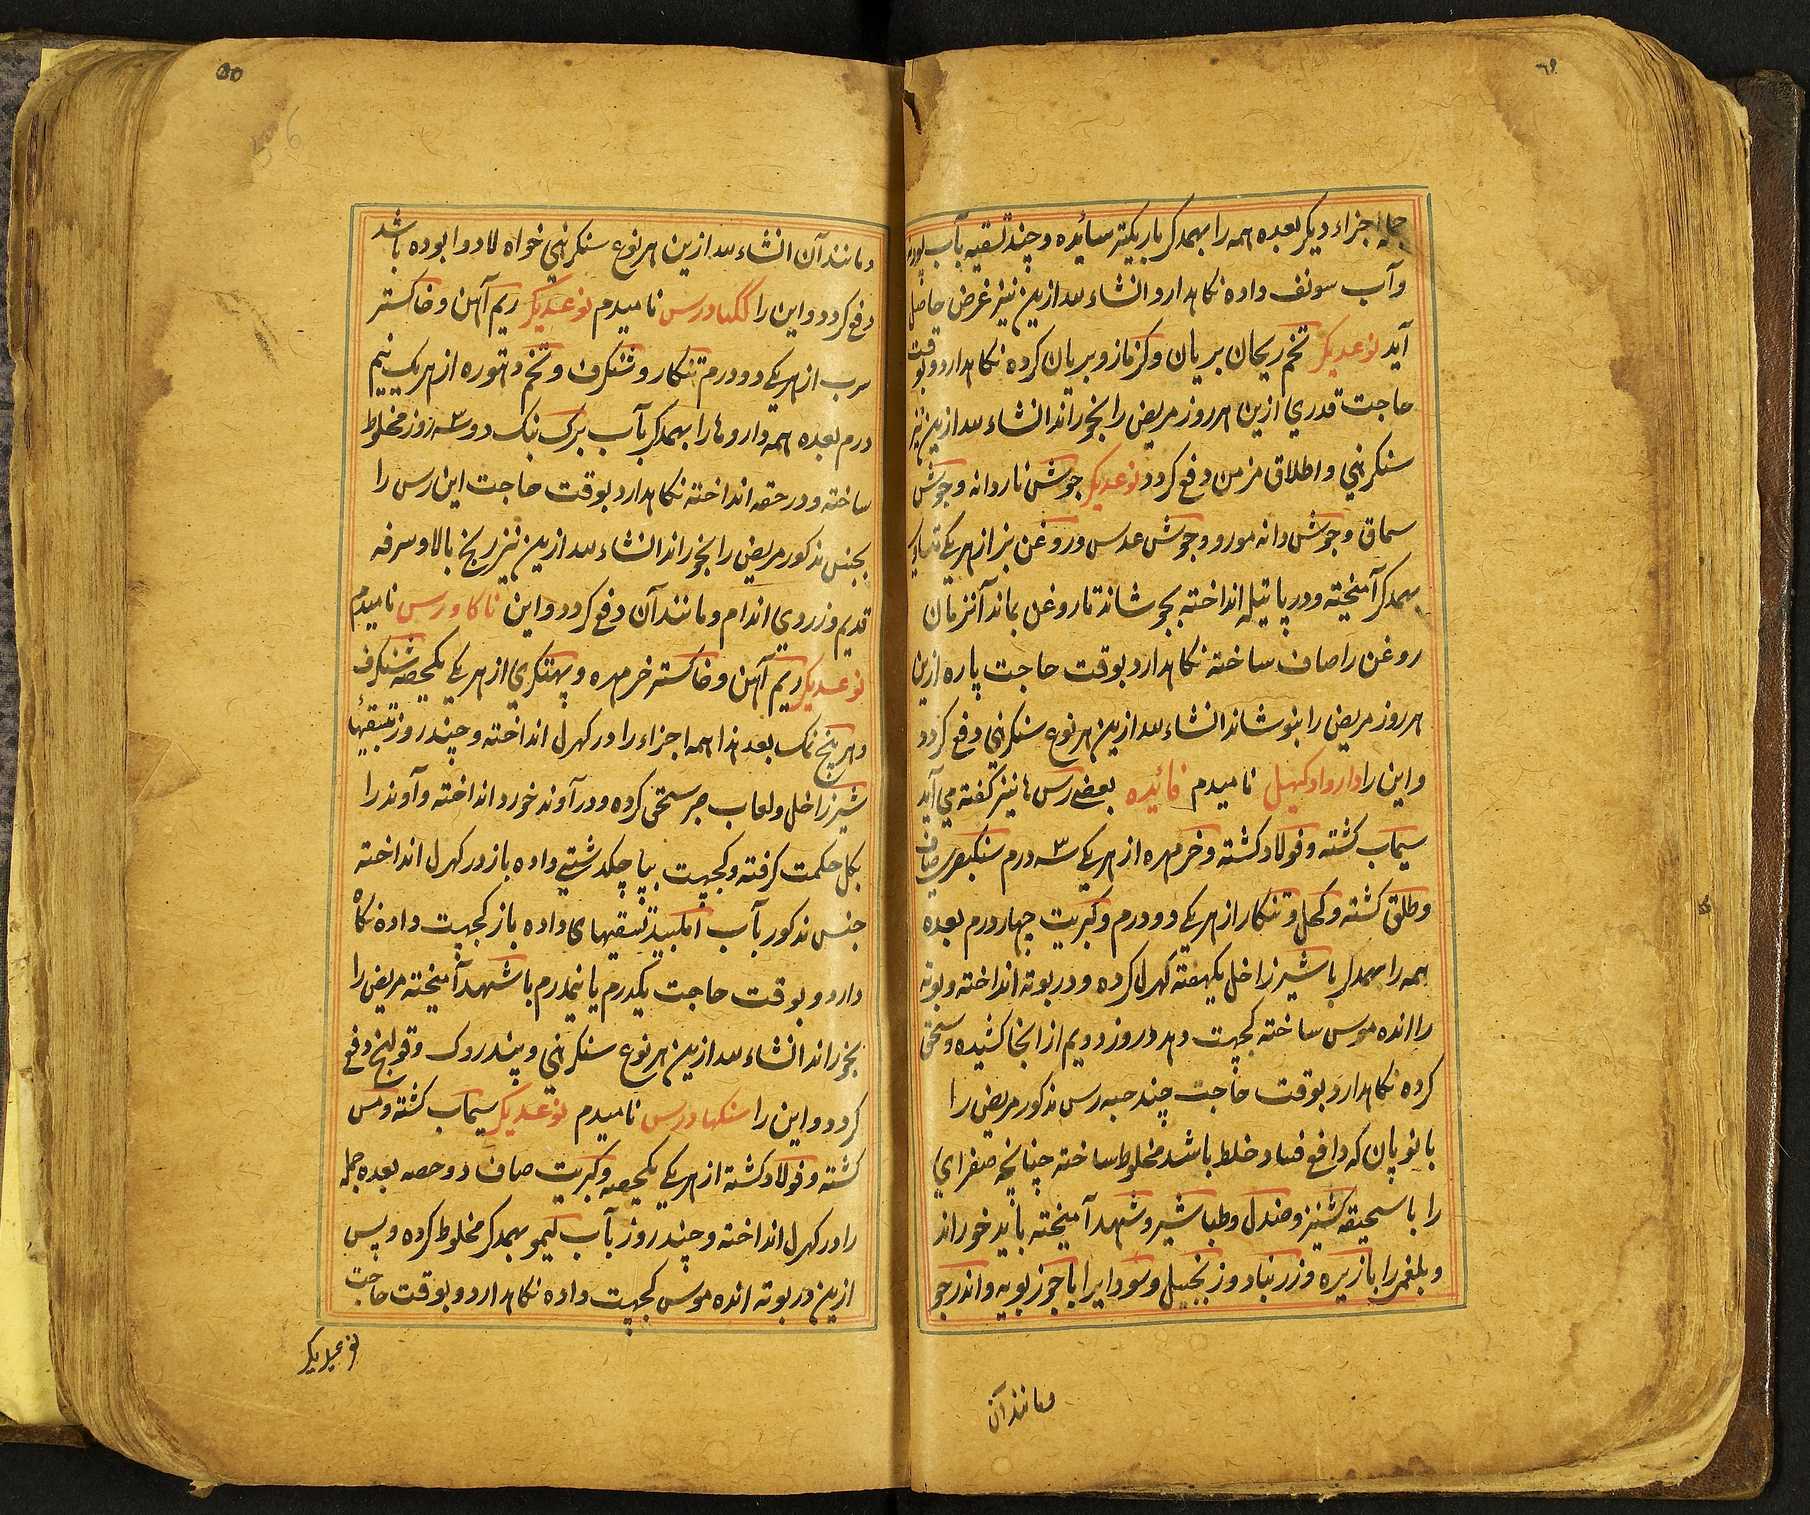 جمله اجزاء دیگر بعده همه را بهمدگر باریکتر سائده و چند تسقیه بآب
وآب سونف داده نگاهدارد انشاءلله ازین نیز غرض حاصل
آید نوعدیگر تخم ریحان بریان و گزمازو بریان کرده نگاهدارد و بوقت
حاجت قدري ازین هر روز مریض را بخوراند انشاءلله ازین نیز
سنگرهني و اطلاق مزمن دفع گردد نوعدیگر جوش ناردانه و جوش
سماق و جوش دانه مورد و جوش عدس و روغن بز از هریکے
بهمدگر آمیخته و در پاتیله انداخته بجوشاند تا روغن بماند آنزمان
روغن را صاف ساخته نگاهدارد بوقت حاجت پاره ازین
هر روز مریض را بنوشاند انشاءلله ازین هر نوع سنگرهني دفع گردد
و این را نامیدم فائیده بعضے رس ها نیز گفته مي آید
سیماب کشته و فولاد کشته و خرمهره از هریکے ۳سه درم سنگبصري صاف
و طلق کشته و کحل و تنگار از هریکے دو درم و کبریت چهار درم بعده
همه را بهمدگر با شیر زاخل یکهفته کهرل کرده و در بوته انداخته و بوته
را انده موس ساخته کجپت دهد و روز دویم از انجا کشیده و سحق
کرده نگاهدارد بوقت حاجت چند حبه رس مذکور مریض را
با نوپان که دافع فساد خلط باشد مخلوط ساخته چنانچه صفراي
را با سحیقه کشنیز و صندل و طباشیر و شهد آمیخته باید خوراند
و بلغمي را با زیره و زرنباد و زنجبیل و سودایرا با جوزبویه و اندرجو
ومانندآن
ومانند آن انشاءلله ازین هر نوع سنگرهني خواه لادوا بوده باشد
دفع گردد و این را نامیدم نوعدیگر ریم آهن و خاکستر
سرب از هریکے دو درم تنگار و شنگرف و تخم دهتوره از هریک نیم
درم بعده همه داروها را بهمدگر بآب برگ بنگ دو ۳سه روز مخلوط
ساخته و در حقه انداخته نگاهدارد بوقت حاجت این رس را
بجنس مذکور مریض را بخوراند انشاءلله ازین نیز رنج بالا و سرفه
قدیم و زردي اندام و مانند آن دفع گردد و این ناکاورس نامیدم
نوعدیگر ریم آهن و خاکستر خرمهره و پهتکري از هریکے یکحصه شنگرف
و هر پنج نمک بعد هذا همه اجزاء را در کهرل انداخته و چند روز تسقیها
شیر زاخل و لعاب صبر سحق کرده و در آوند خورد انداخته و آوند را
بکل حکمت گرفته و کجپت بپاچکدشتے داده باز در کهرل انداخته
جنس مذکور بآب تسقیهای داده باز کجپت داده نگاه
دارد و بوقت حاجت یکدرم یا نیمدرم با شهد آمیخته مریض را
بخوراند انشاءلله ازین هر نوع سنگرهني و پندروک و قولنج دفع
گردد و این را سنگهادرس نامیدم نوعدیگر سیماب کشته و مس
کشته و فولاد کشته از هریکے یکحصه و کبریت صاف دو حصه بعده جمله
را در کهرل انداخته و چند روز بآب لیمو بهمدگر مخلوط کرده و پس
ازین در بوته انده موس کجپت داده نگاهدارد و بوقت حاجت
نوعدیگر